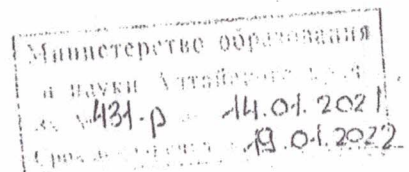 Министерство образования
и науки Алтайского края
за № 431-р от 14.01.2021
Срок 19.01.2022